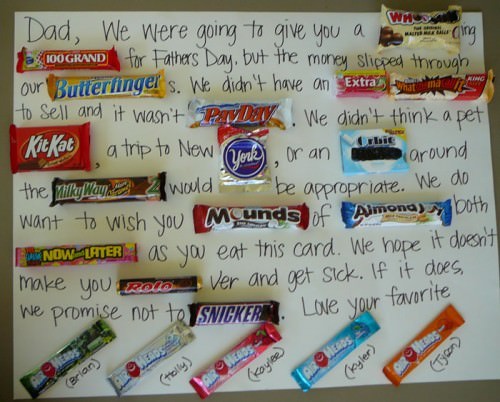 Dad, We were going to give you a WHOPPERS ing
100 GRAND for Fathers Day, but the money slipped through
our Butterfinger s. We didn't have an Extra whatchamacallit KING
to sell and it wasn't PayDay. We didn't think a pet
Kit Kat, a trip to New York, or an Orbit around
the Milky Way 2 would be appropriate. We do
want to wish you Mounds of Almond Joy both
NOW and LATER as you eat this card. We hope it doesn't
make you Rolo ver and get sick. If it does,
we promise not to SNICKERS. Love your favorite
AIRHEADS AIRHEADS AIRHEADS AIRHEADS AIRHEADS
(Brian) (Holly) (Kaylee) (Kyler) (Tyson)